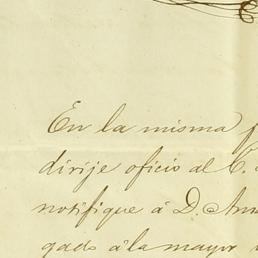 En la misma
dirije oficio al C.
notifique á D.
gado á la mayor